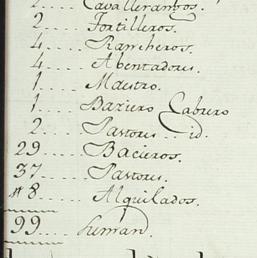 2.... Cavallerangos.
2.... Tortilleros.
4.... Rancheros.
4.... Abentadores.
1.... Maestro.
1.... Baziero Cabrero
2.... Pastores .. id.
29.... Bacieros.
37.... Pastores.
8.... Alquilados.
99... Suman.